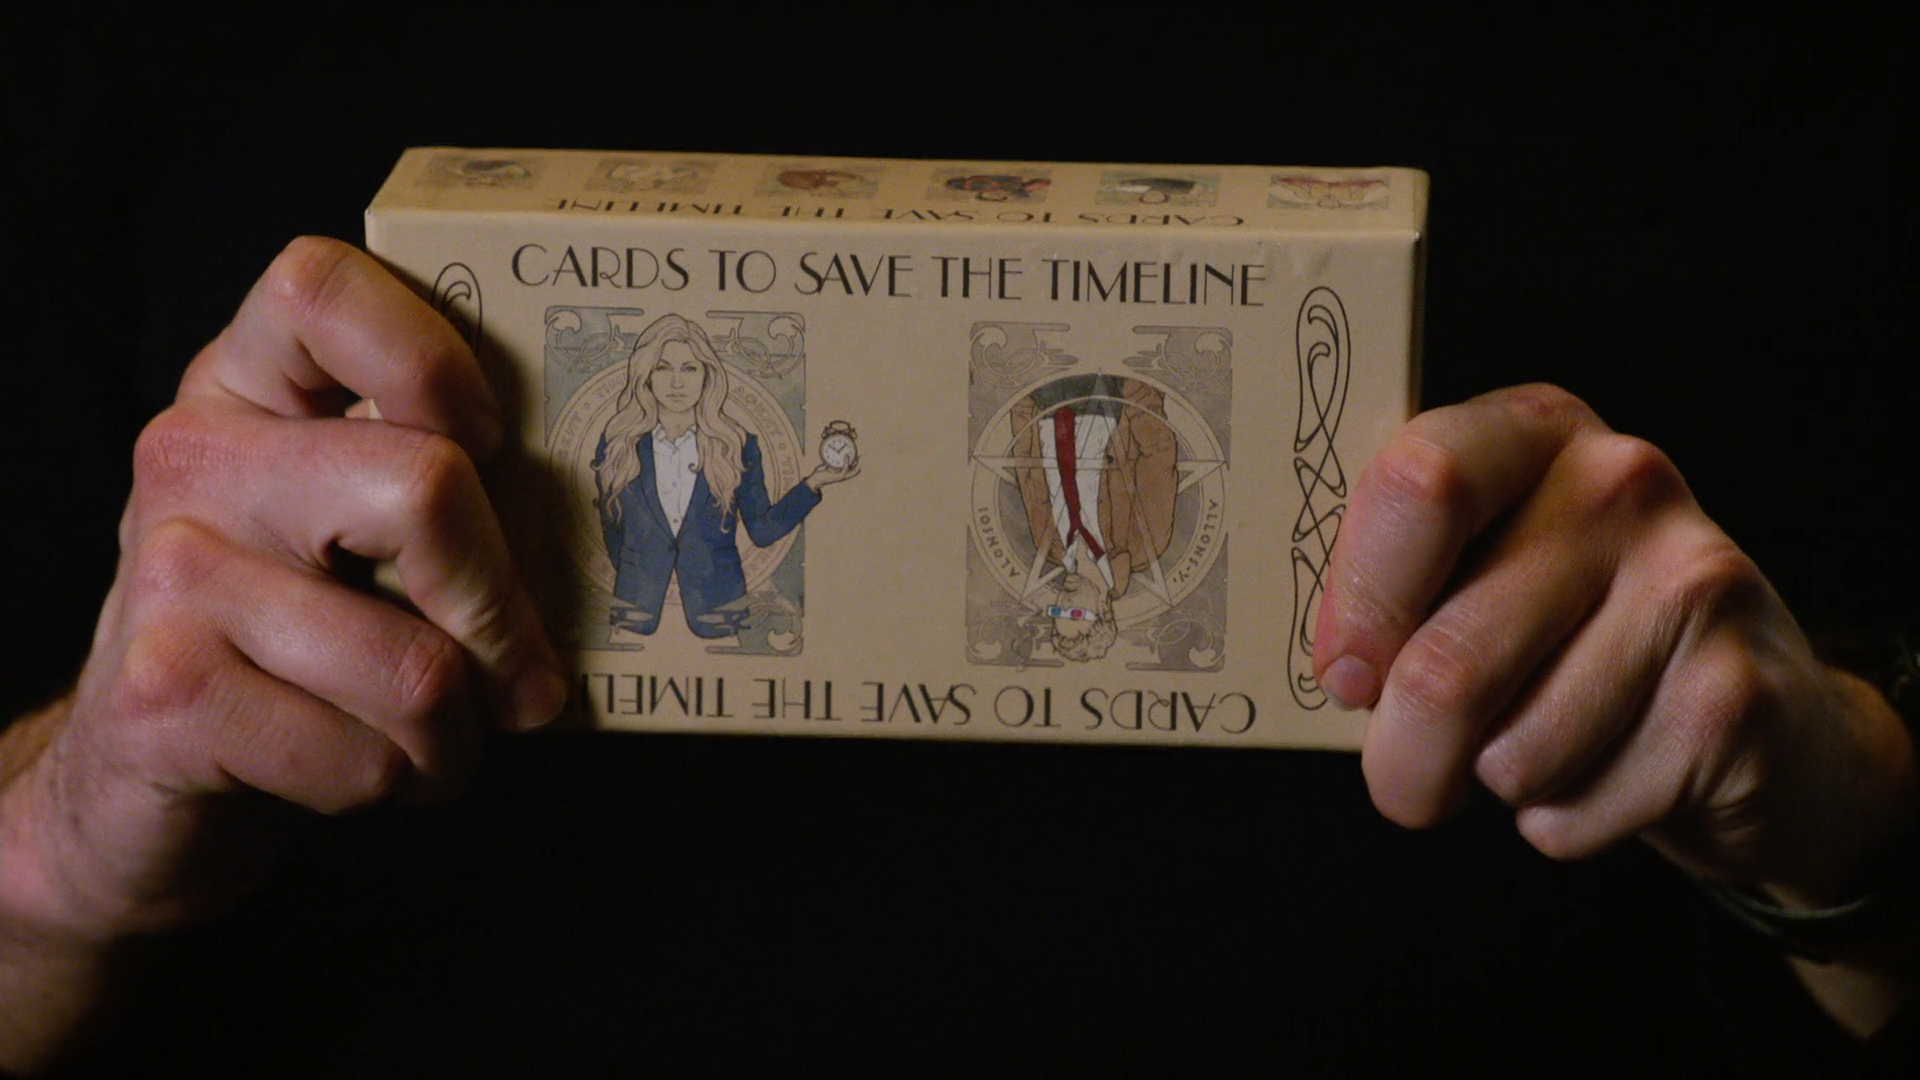 CARDS TO SAVE THE TIMELINE
CARDS TO SAVE THE TIMELINE
ALLONS-Y,
ALONSO!
CARDS TO SAVE THE TIMELI